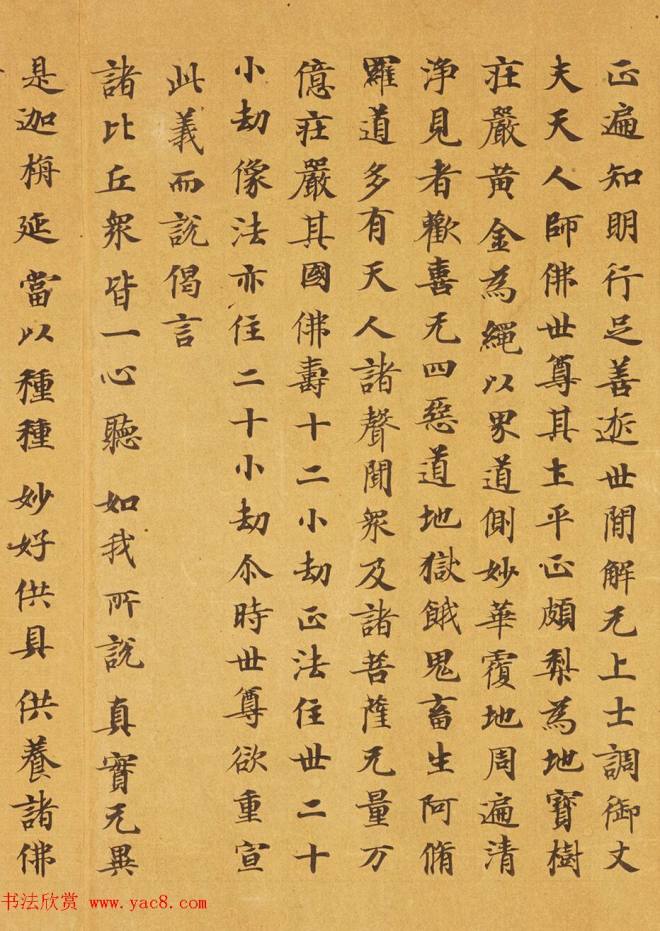 正遍知明行足善逝世間解无上士調御丈
夫天人師佛世尊其土平正頗梨為地寶樹
莊嚴黃金為繩以界道側妙華覆地周遍清
淨見者歡喜无四惡道地獄餓鬼畜生阿脩
羅道多有天人諸聲聞眾及諸菩薩无量万
億莊嚴其國佛壽十二小劫正法住世二十
小劫像法亦住二十小劫尒時世尊欲重宣
此義而說偈言
諸比丘眾 皆一心聽 如我所說 真實无異
是迦栴延 當以種種 妙好供具 供養諸佛
书法欣赏 www.yac8.com